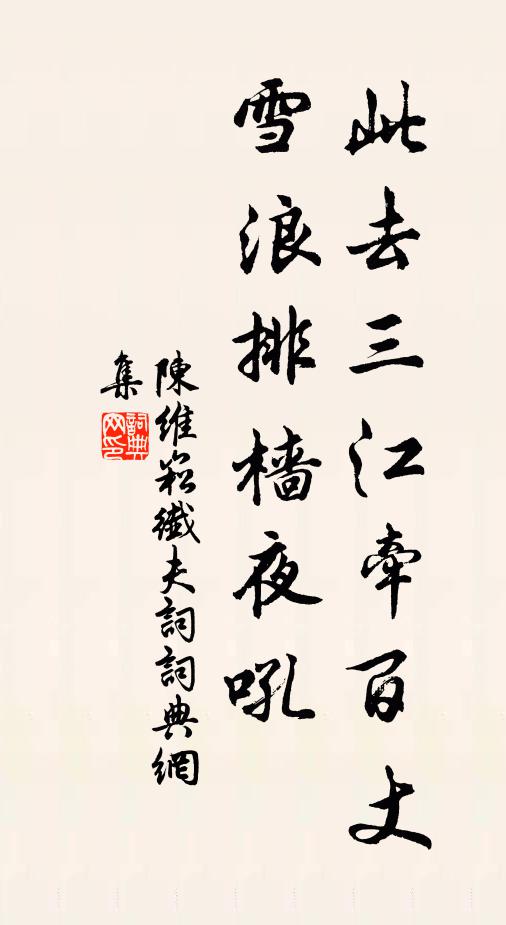 此去三江牽百丈
雪浪排檣夜吼
陳維崧纖夫詞詞典網
集
詞典
网印